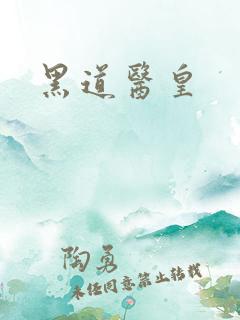 黑道醫皇
陶勇
未经同意禁止转载